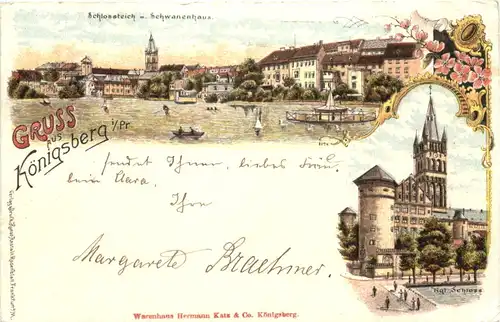 Schlossteich u. Schwanenhaus.
GRUSS
aus
Königsberg i/Pr
sendet Ihnen, liebes Fräu-
lein Clara,
Ihre
Margarete Braehmer.
Kgl. Schloss
Warenhaus Hermann Katz & Co. Königsberg.